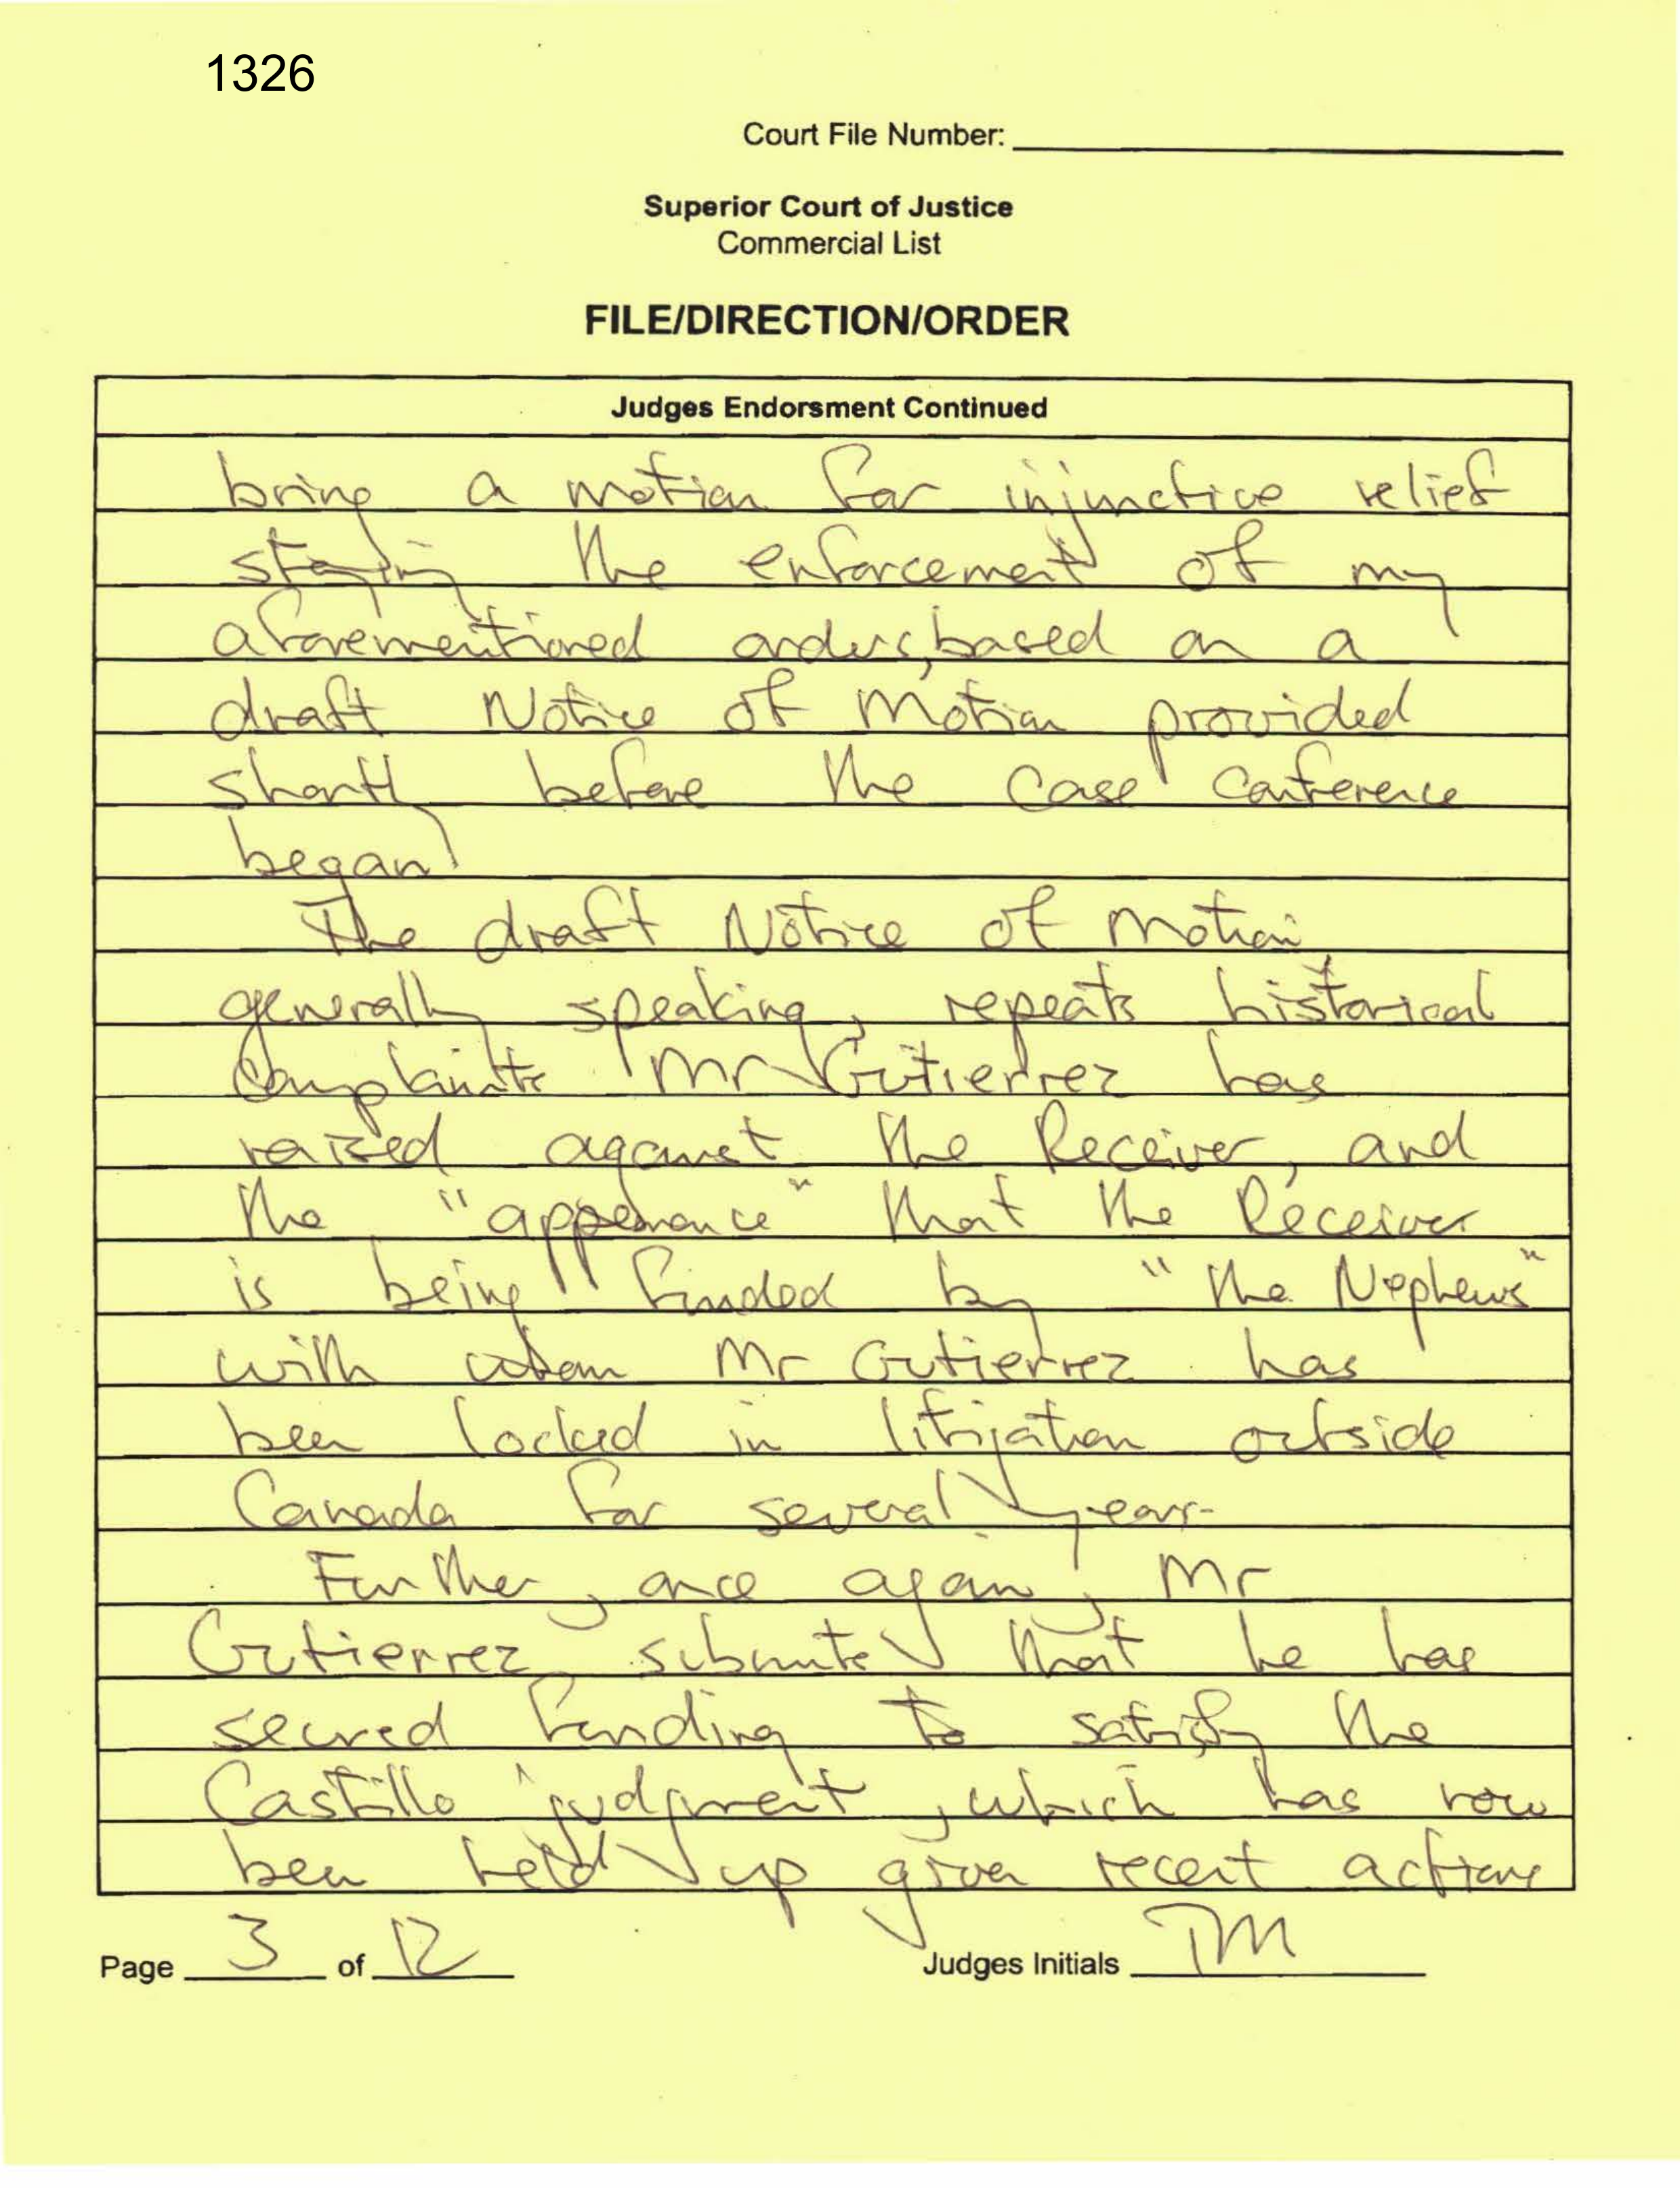 1326
Court File Number:
Superior Court of Justice
Commercial List
FILE/DIRECTION/ORDER
Judges Endorsment Continued
bring a motion for injunctive relief
staying the enforcement of my
aforementioned orders, based on a
draft Notice of Motion provided
shortly before the case conference
began.
The draft Notice of Motion,
generally speaking, repeats historical
complaints Mr Gutierrez has
raised against the Receiver, and
the "appearance" that the Receiver
is being funded by "the Nephews"
with whom Mr Gutierrez has
been locked in litigation outside
Canada for several years.
Further, once again, Mr
Gutierrez submits that he has
secured funding to satisfy the
Castillo judgment, which has now
been held up given recent actions
Page 3 of 12
Judges Initials TM